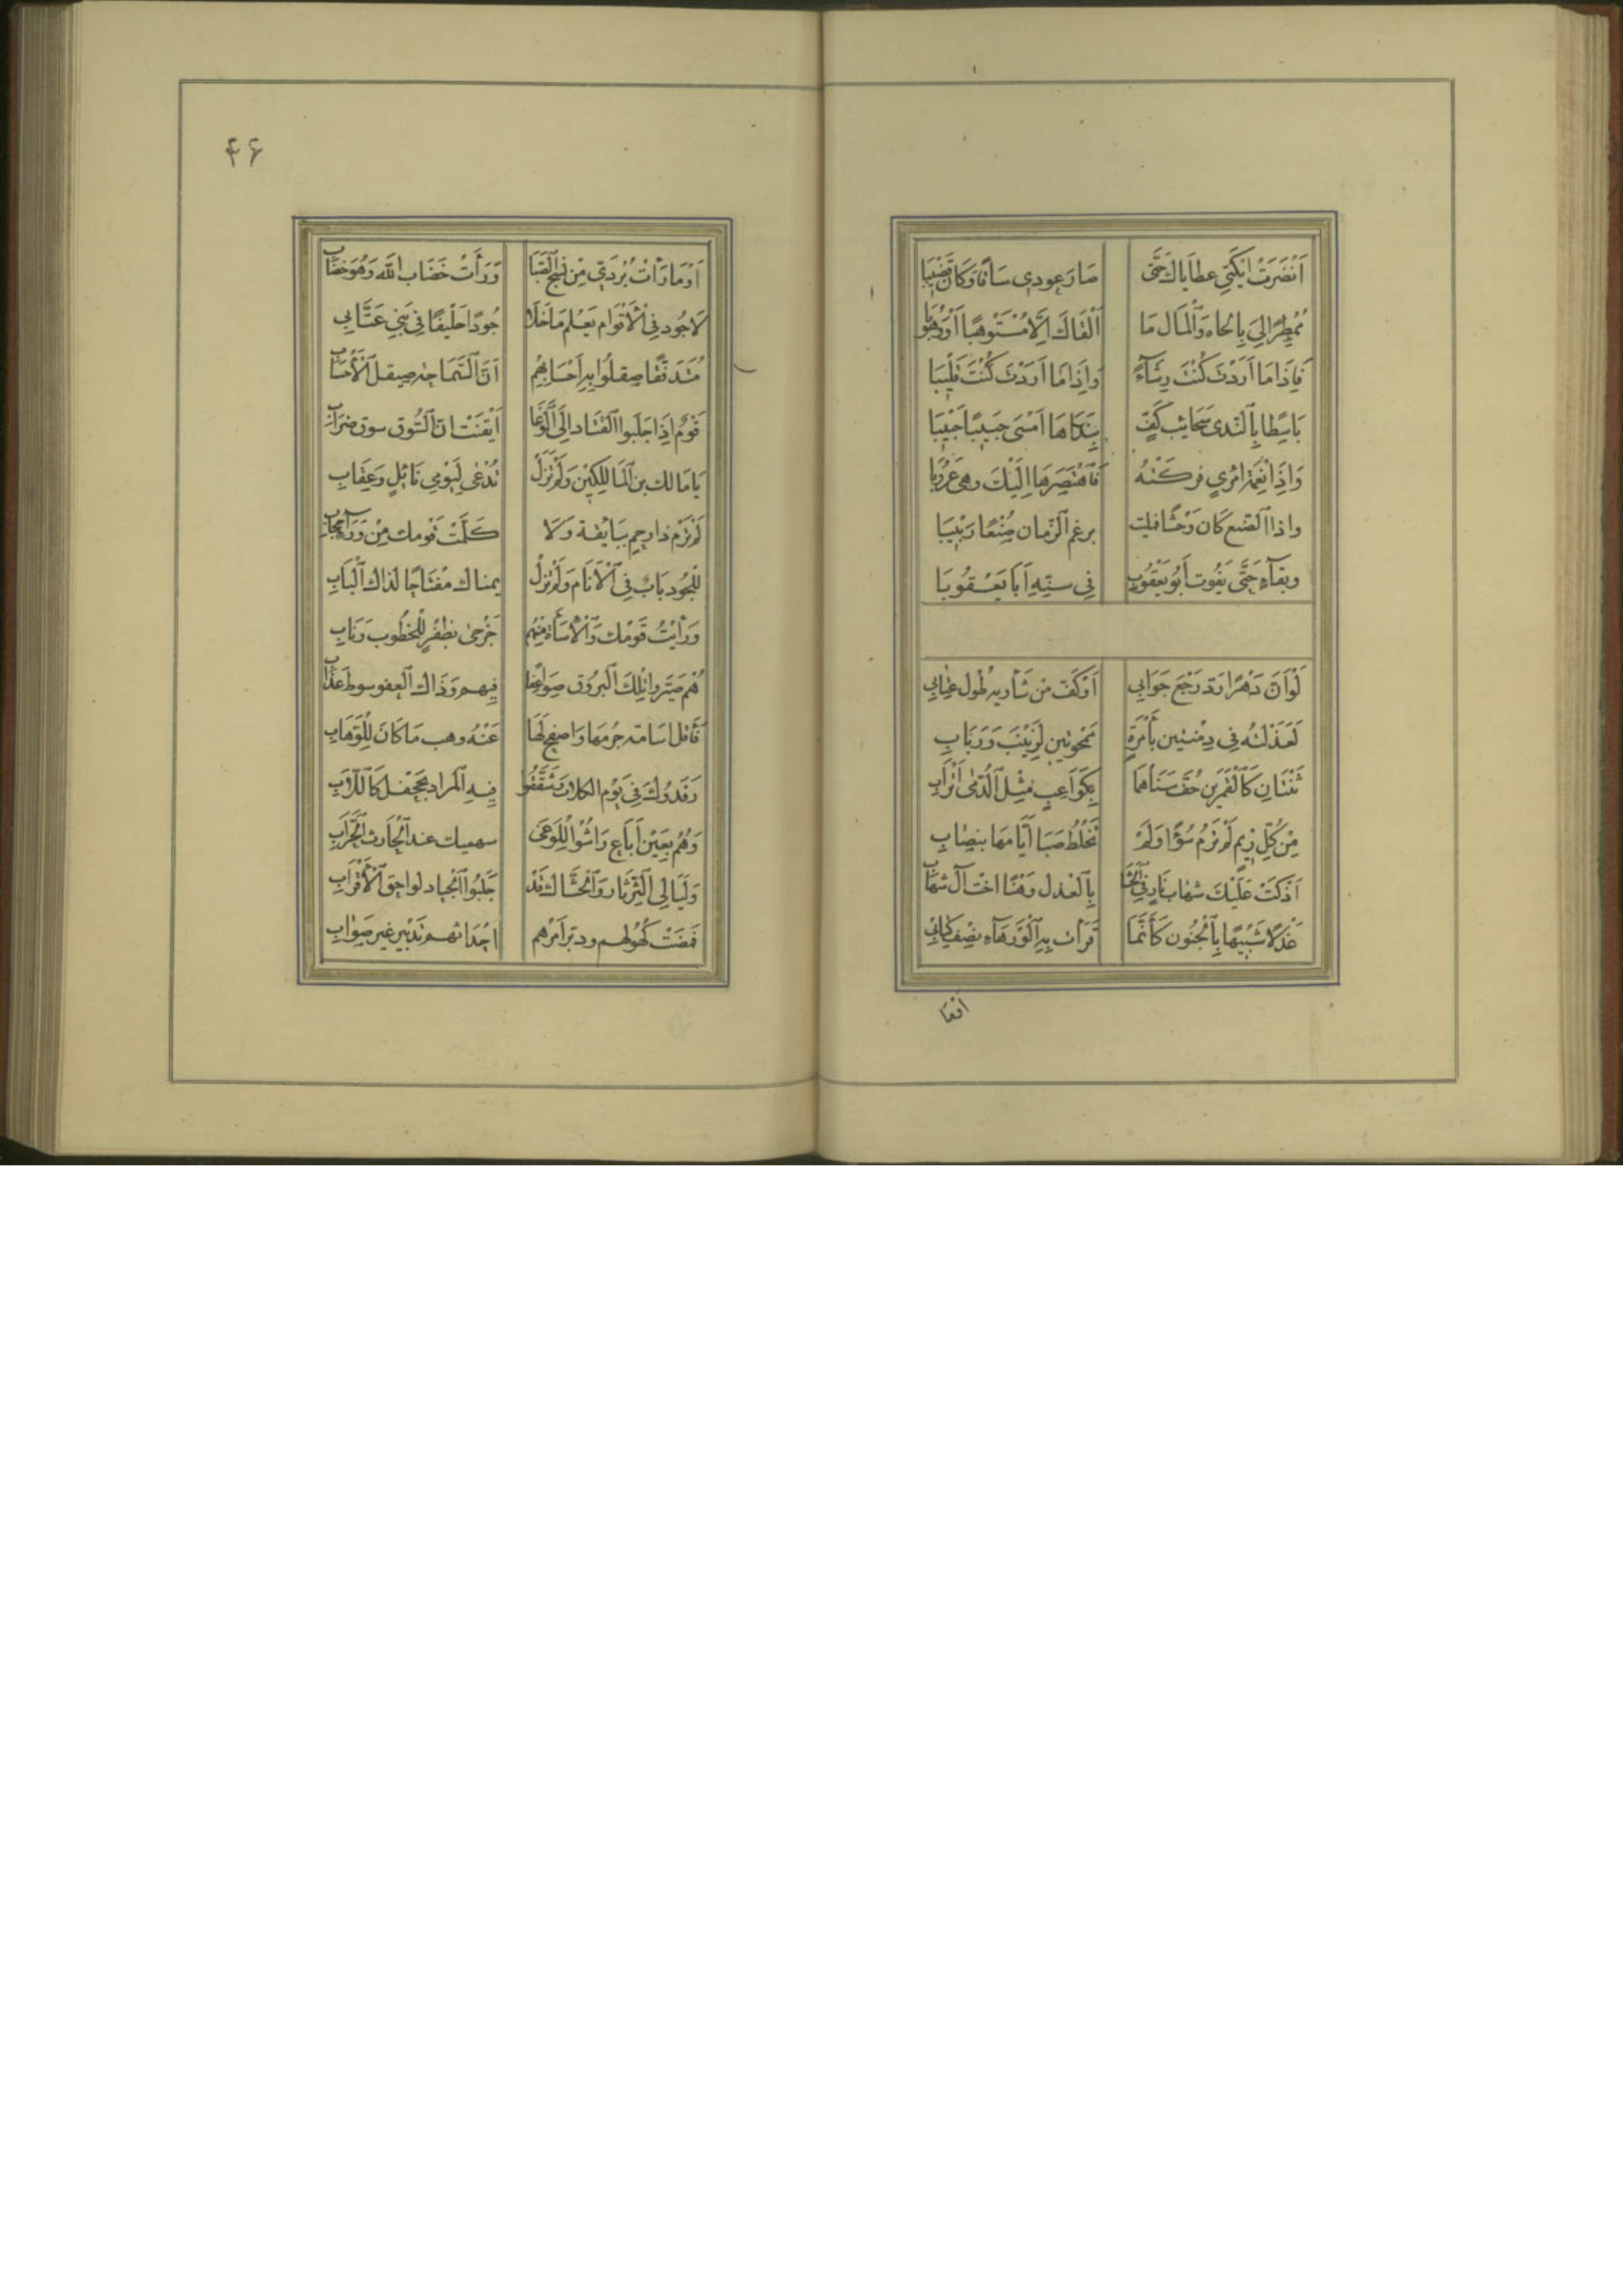 اَنْضَرَتْ اَيْكَتِي عطَاياكَ حَتَّى صَارَ عودى سَاقًا وَكَانَ قَضِيبَا
مُمْطِرًا لِيَ بِالجَاه وَالْمَال مَا اَلْقَاكَ اِلَّا مُسْتَوْهِبًا اَوْ وَهُوبَا
فَاِذَا مَا اَرَدْتُ كُنْتَ رِشَآءً وَاِذَا مَا اَرَدْتُ كُنْتَ قَلِيبَا
بَاسِطًا بِالنَّدى سَحَائِبَ كَفٍّ بِنَدَاهَا اَمْسَى حَبِيبٌ حَبِيبَا
وَاِذَا نِعْمَة امْرِئٍ فركَتْهُ فَاهْتَصِرْهَا اِلَيْكَ وهى عَرُوبَا
واذا الصُّنع كَانَ وَحْشًا فمليت برغم الزّمان صُنْعًا رَبِيبَا
وبقآءً حَتَّى يَفُوت اَبُو يَعْقُوبَ فِي سِنِّهِ اَبَا يَعْقُوبَا
لَوْ اَنَّ دَهْرًا رَدَّ رَجْعَ جَوَابِي اَوْ كَفَّ مِنْ شَأْوَيْهِ طُول عِتَابِي
لَعَذَلْتُهُ فِي دِمْنَتَيْنِ بِأَمْرَةٍ مَمْحُوَّتَيْنِ لِزَيْنَبَ وَرَبَابِ
ثِنْتَانِ كَالْقَمَرَيْنِ حُفَّ سَنَاهُمَا بِكَوَاعِبٍ مِثْلِ الدُّمَى اَتْرَابِ
مِنْ كُلِّ رِيمٍ لَمْ تَرُمْ سُوْءًا وَلَمْ تَخْلُطْ صَبَا اَيَّامهَا بتصَابِ
اَذْكَتْ عَلَيْكَ شهَاب نَارٍ فِي الْحَشَا بِالْعَذل وَهْنًا اخْت آل شهَابِ
عَذْلًا شَبِيهًا بِالْجُنُون كَأَنَّمَا قَرَأَتْ بِهِ الْوَرْهَآء نِصْف كِتَابِ
۴۶
اَوَمَا رَأَتْ بُرْدَيَّ مِنْ نَسْجِ الصِّبَا وَرَأَتْ خَضَاب اللّه وَهُوَ خضَابِ
لَا جُود فِي الْاَقْوَام يُعْلَم مَا خَلَا جُودًا حَلِيفًا فِي بَنِي عَتَّابِ
مُتَدَفِّقًا صقلُوا بِهِ اَحْسَابهُمْ اَنَّ السَّمَاحَة صيقل الْاَحْسَابِ
قَوْمٌ اِذَا جَلَبُوا الجياد اِلَى الْوَغَا اَيْقَنْتَ انّ السُّوق سوق ضرَابِ
يَا مَالك بن الْمَالِكِينَ وَلَمْ تَزَلْ تُدْعَى لِيَوْمَي نَائِلٍ وَعِقَابِ
لَمْ تَرْمِ ذا رحم بِبَايِقَة وَلَا كَلَّمْتَ قَوْمك مِنْ وَرَآء حِجَابِ
لِلْجُود بَابٌ فِي الْاَنَام وَلَمْ تَزَلْ يمناك مفْتَاحًا لذاك الْبَابِ
وَرَأَيْتُ قَوْمكَ وَالْاِسَاءَة مِنْهُمُ جَرْحَى بظفْرٍ للْخطُوب وَنَابِ
هُمْ صَيَّروا تِلْكَ الْبرُوق صَوَاعِقًا فِيهم وَذَاك الْعفو سوط عَذَابِ
فَأَقل اُسَامة جرْمهَا وَاصْفَح لَهَا عَنْهُ وهب مَا كَانَ لِلْوَهَّابِ
رَفَدُوكَ فِي يَوْم الكلاب وَشَقَّقُوا فِيهِ الْمزَاد بِجَحْفَل كَاللَّابِ
وَهُمُ بِعَيْن اَبَاغ رَاشُوا لِلْوَغَى سهميك عند الْحَارث الْحَرَّابِ
وَلَيَالِي الثَّرْثَار وَالْحَشَّاك قَدْ جَلَبُوا الْجياد لواحق الْاَقْرَابِ
فَمَضَتْ كُهُولهم ودبّر اَمْرهم احْدَاثُهم تَدْبِير غير صَوَابِ